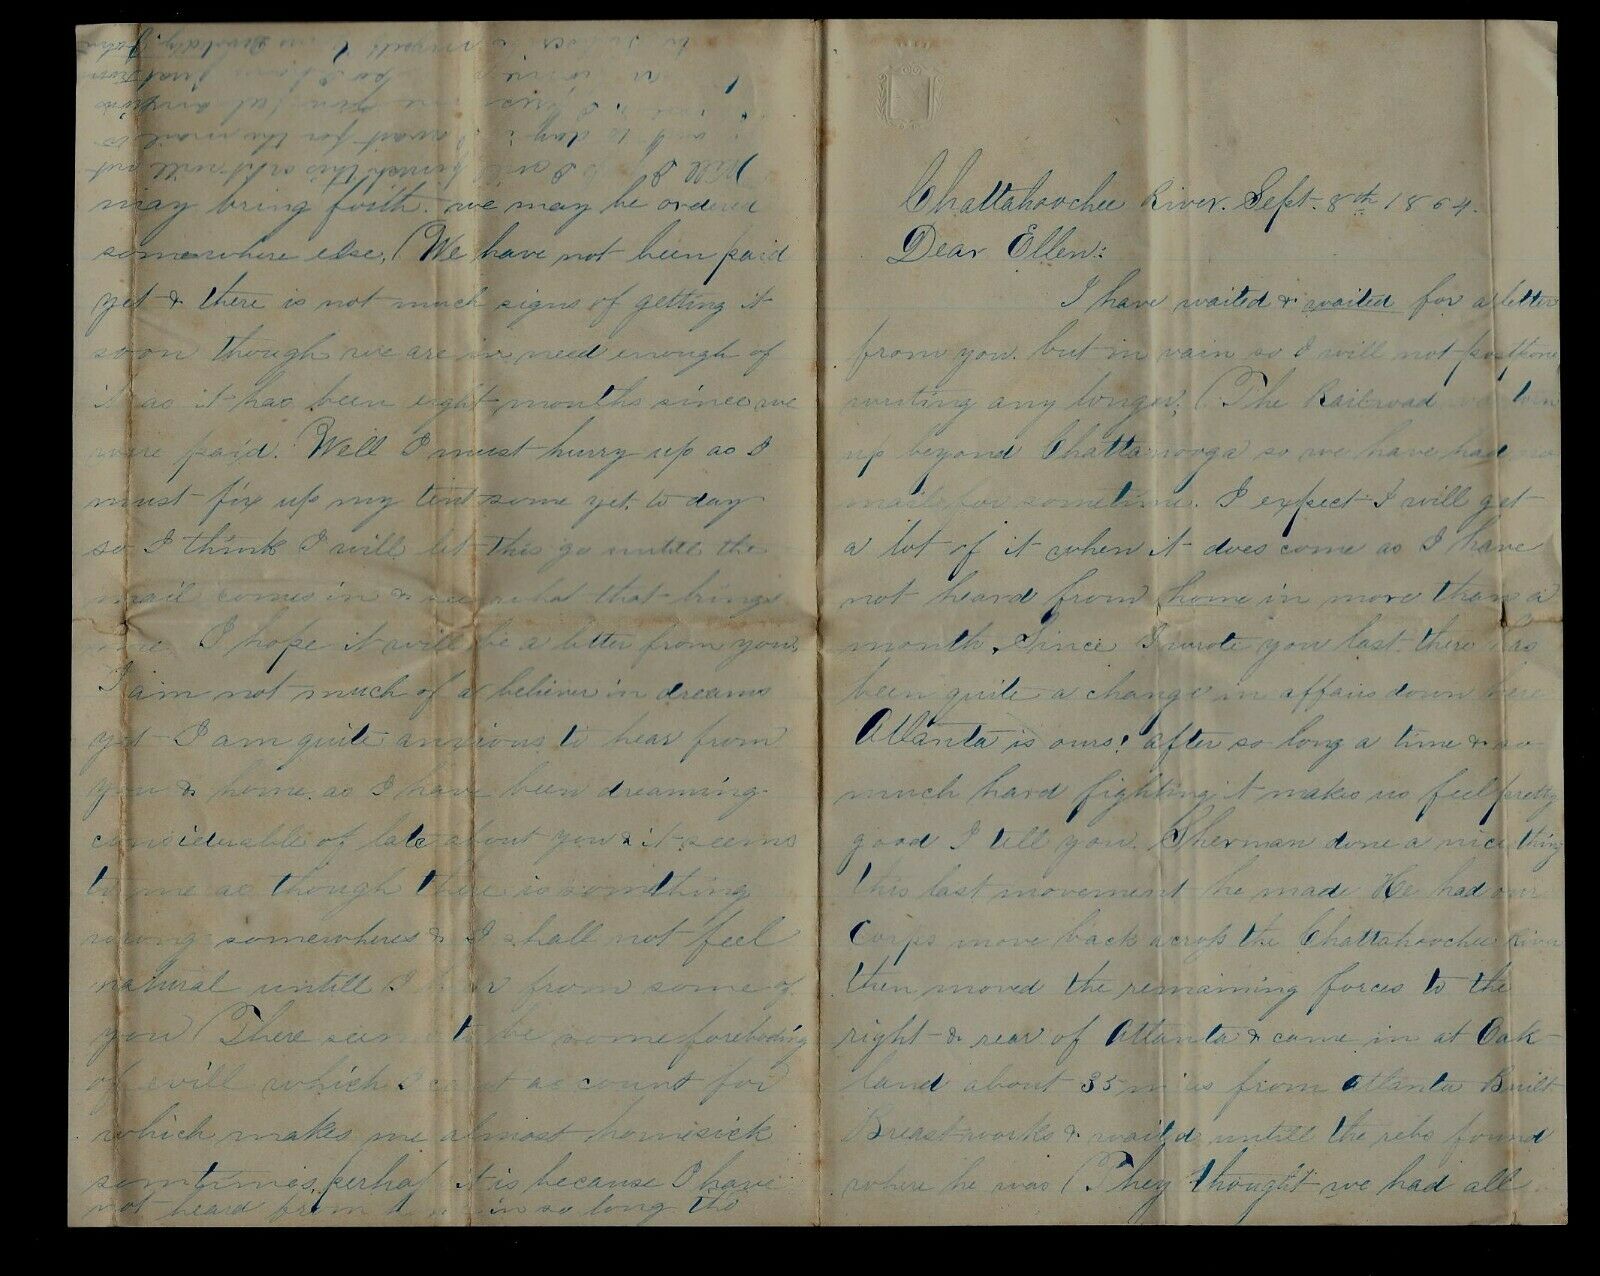 Chattahoochee River. Sept. 8th 1864.
Dear Ellen:
I have waited & waited for a letter
from you. but in vain so I will not postpone
writing any longer. (The Railroad was torn
up beyond Chattanooga so we have had no
mails for sometime. I expect I will get
a lot of it when it does come as I have
not heard from home in more than a
month. Since I wrote you last there has
been quite a change in affairs down here
Atlanta is ours! after so long a time & so
much hard fighting it makes us feel pretty
good I tell you. Sherman done a nice thing
this last movement he made He had our
Corps move back across the Chattahoochee River
then moved the remaining forces to the
right & rear of Atlanta & came in at Oak
land about 35 miles from Atlanta Built
Breastworks & waited untill the rebs found
where he was (They thought we had all
may bring forth. we may be ordered
somewhere else. (We have not been paid
yet & there is not much signs of getting it
soon though we are in need enough of
it as it has been eight months since we
were paid. Well I must hurry up as I
must fix up my tent some yet to day
so I think I will let this go untill the
mail comes in & see what that brings
me. I hope it will be a letter from you,
I am not much of a believer in dreams
yet I am quite anxious to hear from
you & home. as I have been dreaming
considerable of late about you & it seems
to me as though there is something
wrong somewheres & I shall not feel
natural untill I hear from some of
you (There seems to be some foreboding
of evill which I cant account for
which makes me almost homesick
sometimes. perhaps it is because I have
not heard from in so long tho
Well I will finish this as it will not
to day wait for the mail